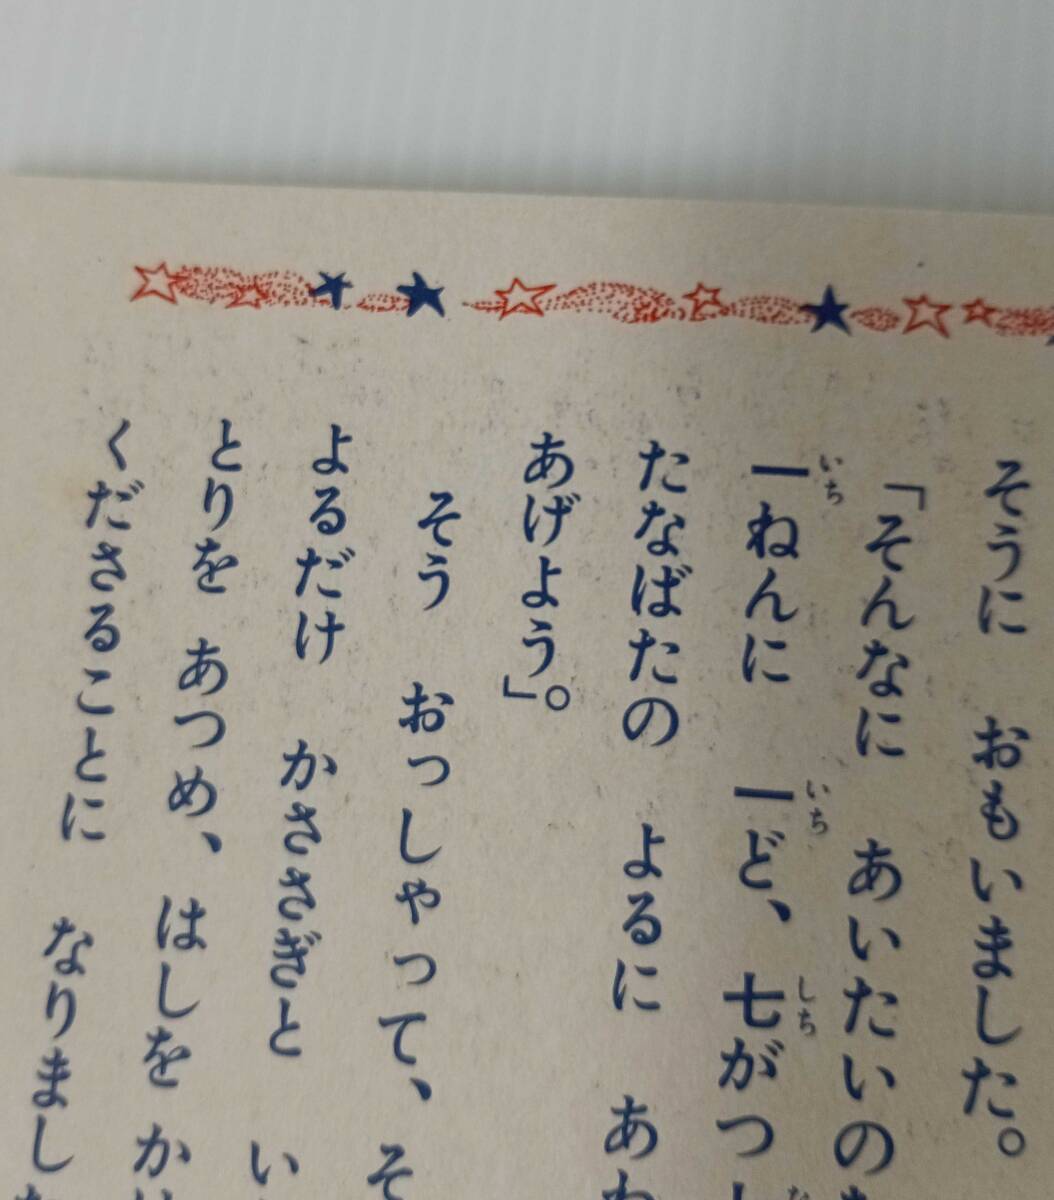 そうに おもいました。
「そんなに あいたいの
一ねんに 一ど、七がつ
いち いち しち
たなばたの よるに あ
あげよう」。
そう おっしゃって、そ
よるだけ かささぎと い
とりを あつめ、はしを か
くださることに なりまし